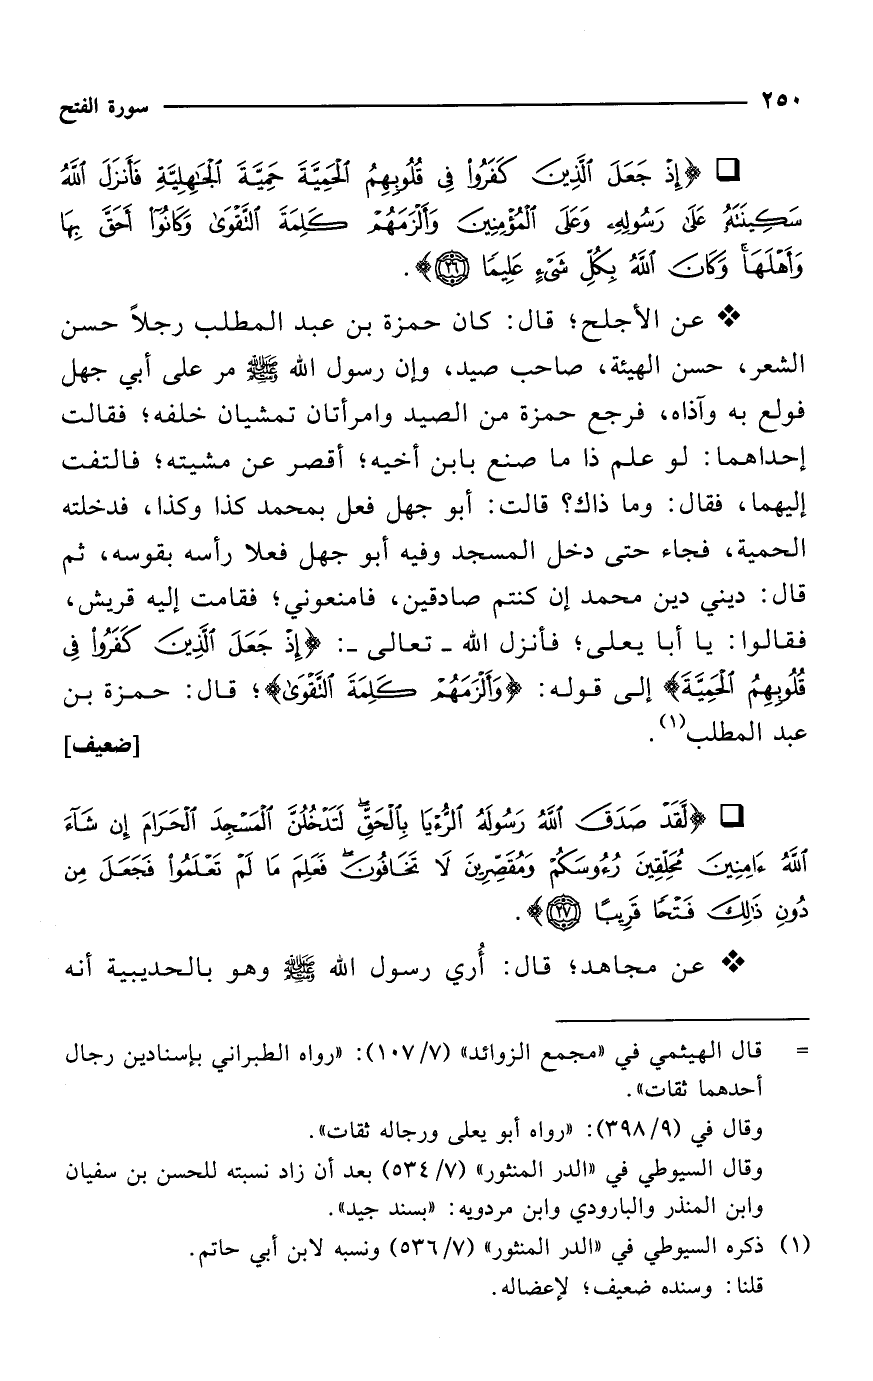 ٢٥٠ سورة الفتح
❑ ﴿إِذْ جَعَلَ ٱلَّذِينَ كَفَرُوا۟ فِى قُلُوبِهِمُ ٱلْحَمِيَّةَ حَمِيَّةَ ٱلْجَـٰهِلِيَّةِ فَأَنزَلَ ٱللَّهُ
سَكِينَتَهُۥ عَلَىٰ رَسُولِهِۦ وَعَلَى ٱلْمُؤْمِنِينَ وَأَلْزَمَهُمْ كَلِمَةَ ٱلتَّقْوَىٰ وَكَانُوٓا۟ أَحَقَّ بِهَا
وَأَهْلَهَا ۚ وَكَانَ ٱللَّهُ بِكُلِّ شَىْءٍ عَلِيمًا ٢٦﴾.
❖ عن الأجلح؛ قال: كان حمزة بن عبد المطلب رجلاً حسن
الشعر، حسن الهيئة، صاحب صيد، وإن رسول الله ﷺ مر على أبي جهل
فولع به وآذاه، فرجع حمزة من الصيد وامرأتان تمشيان خلفه؛ فقالت
إحداهما: لو علم ذا ما صنع بابن أخيه؛ أقصر عن مشيته؛ فالتفت
إليهما، فقال: وما ذاك؟ قالت: أبو جهل فعل بمحمد كذا وكذا، فدخلته
الحمية، فجاء حتى دخل المسجد وفيه أبو جهل فعلا رأسه بقوسه، ثم
قال: ديني دين محمد إن كنتم صادقين، فامنعوني؛ فقامت إليه قريش،
فقالوا: يا أبا يعلى؛ فأنزل الله ـ تعالى ـ: ﴿إِذْ جَعَلَ ٱلَّذِينَ كَفَرُوا۟ فِى
قُلُوبِهِمُ ٱلْحَمِيَّةَ﴾ إلى قوله: ﴿وَأَلْزَمَهُمْ كَلِمَةَ ٱلتَّقْوَىٰ﴾؛ قال: حمزة بن
عبد المطلب(١). [ضعيف]
❑ ﴿لَّقَدْ صَدَقَ ٱللَّهُ رَسُولَهُ ٱلرُّءْيَا بِٱلْحَقِّ ۖ لَتَدْخُلُنَّ ٱلْمَسْجِدَ ٱلْحَرَامَ إِن شَآءَ
ٱللَّهُ ءَامِنِينَ مُحَلِّقِينَ رُءُوسَكُمْ وَمُقَصِّرِينَ لَا تَخَافُونَ ۖ فَعَلِمَ مَا لَمْ تَعْلَمُوا۟ فَجَعَلَ مِن
دُونِ ذَٰلِكَ فَتْحًا قَرِيبًا ٢٧﴾.
❖ عن مجاهد؛ قال: أُري رسول الله ﷺ وهو بالحديبية أنه
= قال الهيثمي في «مجمع الزوائد» (٧/ ١٠٧): «رواه الطبراني بإسنادين رجال
أحدهما ثقات».
وقال في (٩/ ٣٩٨): «رواه أبو يعلى ورجاله ثقات».
وقال السيوطي في «الدر المنثور» (٧/ ٥٣٤) بعد أن زاد نسبته للحسن بن سفيان
وابن المنذر والبارودي وابن مردويه: «بسند جيد».
(١) ذكره السيوطي في «الدر المنثور» (٧/ ٥٣٦) ونسبه لابن أبي حاتم.
قلنا: وسنده ضعيف؛ لإعضاله.